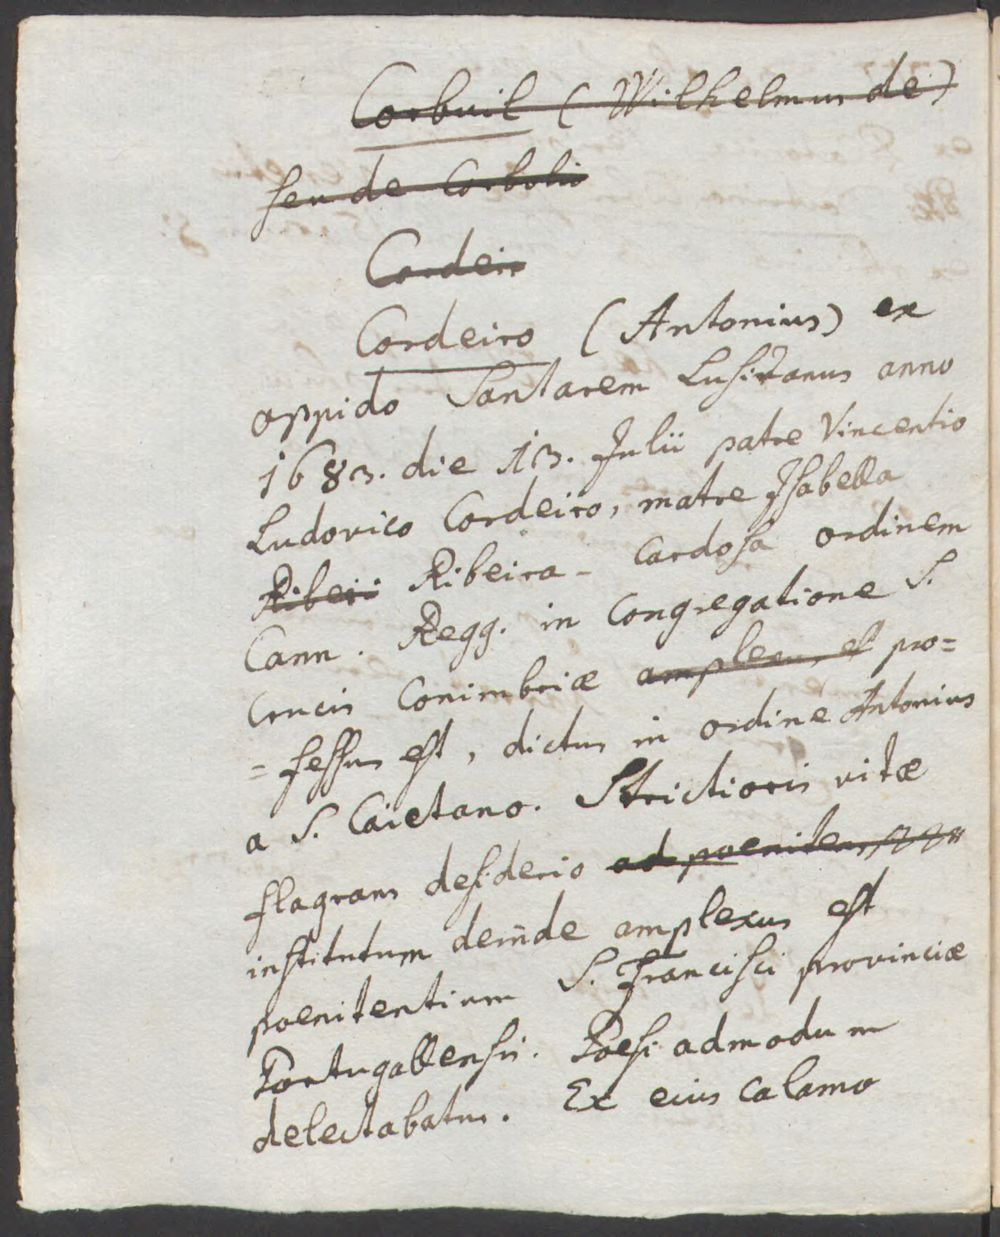 Corbuil (Wilhelmus de)
seu de Corbolio
Cordeir
Cordeiro (Antonius) ex
oppido Santarem Lusitanus anno
1683. die 13. Julii patre Vincentio
Ludovico Cordeiro, matre Isabella
Riberi Ribeira - Cardosa ordinem
Cann. Regg. in Congregatione S.
Crucis Conimbriæ amplexus est pro=
=fessus est, dictus in ordine Antonius
a S. Caietano. Strictioris vitæ
flagrans desiderio ad poeniten
institutum deinde amplexus est
poenitentium S. Francisci provinciæ
Portugallensis. Poesi admodum
delectabatur. Ex eius calamo